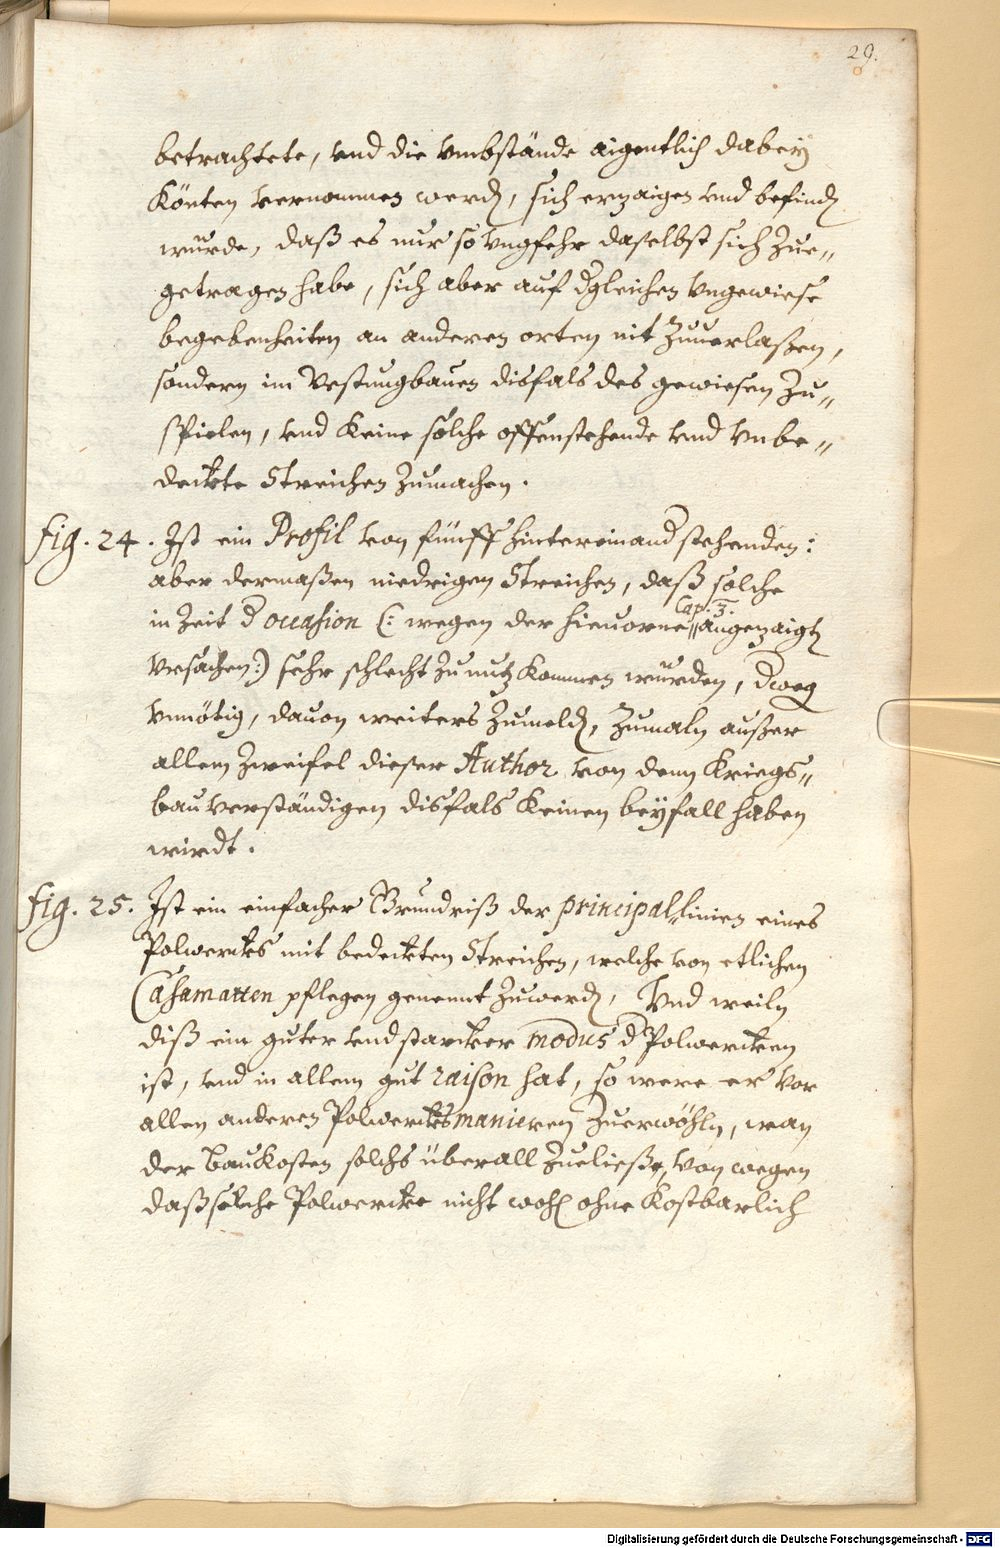 29.
betrachtete, vnd die vmbstände aigentlich dabey
Könten vernommen werdē, sich erzaigen vnd befindē
wurde, daß es nur so vngfehr daselbst sich Zue„
getragen habe, sich aber auf dgleichen vngewiese
begebenheiten an anderen orten nit Zuuerlaßen,
sondern im Vestungbauen disfals des gewiesen Zu„
spielen, vnd Keine solche offenstehende vnd vnbe„
deckte Streichen Zumachen.
fig. 24. Ist ein Profil von fünff hintereinand stehenden:
aber dermaßen niedrigen Streichen, daß solche
in Zeit d occasion (: wegen der hieuorne„ Cap. 3. angezaigtē
Vrsachen:) sehr schlecht Zu nutz Kommen wurden, dweg
vnnötig, dauon weiters Zumeldē, Zumaln außer
allem Zweifel dieser Author von denn Kriegs„
bauverständigen disfals Keinen beyfall haben
wirdt.
fig. 25. Ist ein einfacher Grundriß der principal„linien eines
Polwercks mit bedeckten Streichen, welche von etlichen
Casamatten pflegen genennt Zuwerdē, Vnd weiln
diß ein guter vnd starcker modus d Polwercken
ist, vnd in allem gut raison hat, so were er vor
allen anderen Polwercks manieren Zuerwöhln, wan
der Baukosten solchs überall Zueließe, von wegen
daß solche Polwercke nicht wohl ohne Kostbarlich
Digitalisierung gefördert durch die Deutsche Forschungsgemeinschaft - DFG